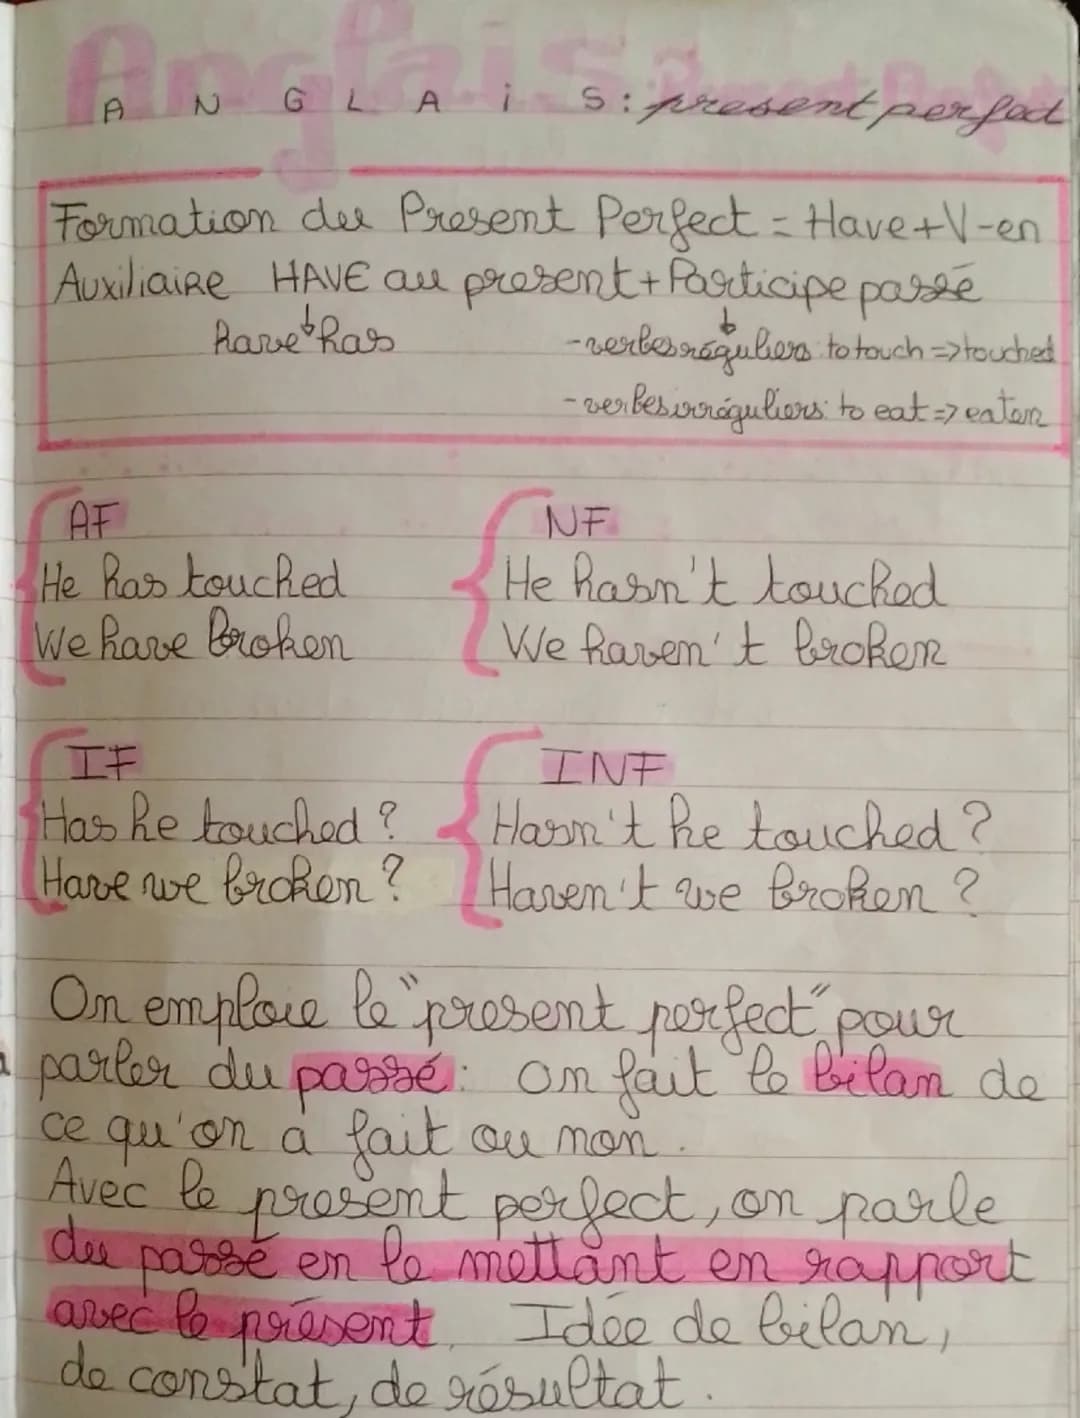 Anglais: Present Perfect
ANGLAiS: present perfect
Formation du Present Perfect = Have+V-en
Auxiliaire HAVE au present + Participe passé
have has
- verbes réguliers: to touch => touched
- verbes irréguliers: to eat => eaten
AF
He has touched
We have broken
NF
He hasn't touched
We haven't broken
IF
Has he touched?
Have we broken?
INF
Hasn't he touched?
Haven't we broken?
On emploie le "present perfect" pour
parler du passé: On fait le bilan de
ce qu'on a fait ou non.
Avec le present perfect, on parle
du passé en le mettant en rapport
avec le présent. Idée de bilan,
de constat, de résultat.